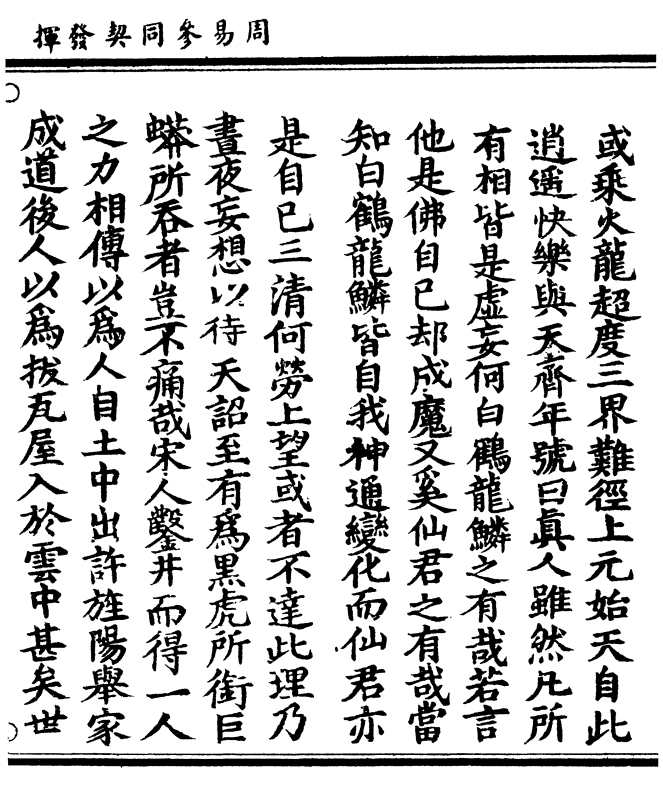 周易參同契發揮
或乘火龍超度三界難徑上元始天自此
逍遥快樂與天齊年號曰真人雖然凡所
有相皆是虛妄何白鶴龍鱗之有哉若言
他是佛自己却成魔又奚仙君之有哉當
知白鶴龍鱗皆自我神通變化而仙君亦
是自己三清何勞上望或者不達此理乃
晝夜妄想以待天詔至有為黑虎所銜巨
蟒所吞者豈不痛哉宋人鑿井而得一人
之力相傳以為人自土中出許旌陽舉家
成道後人以為拔瓦屋入於雲中甚矣世